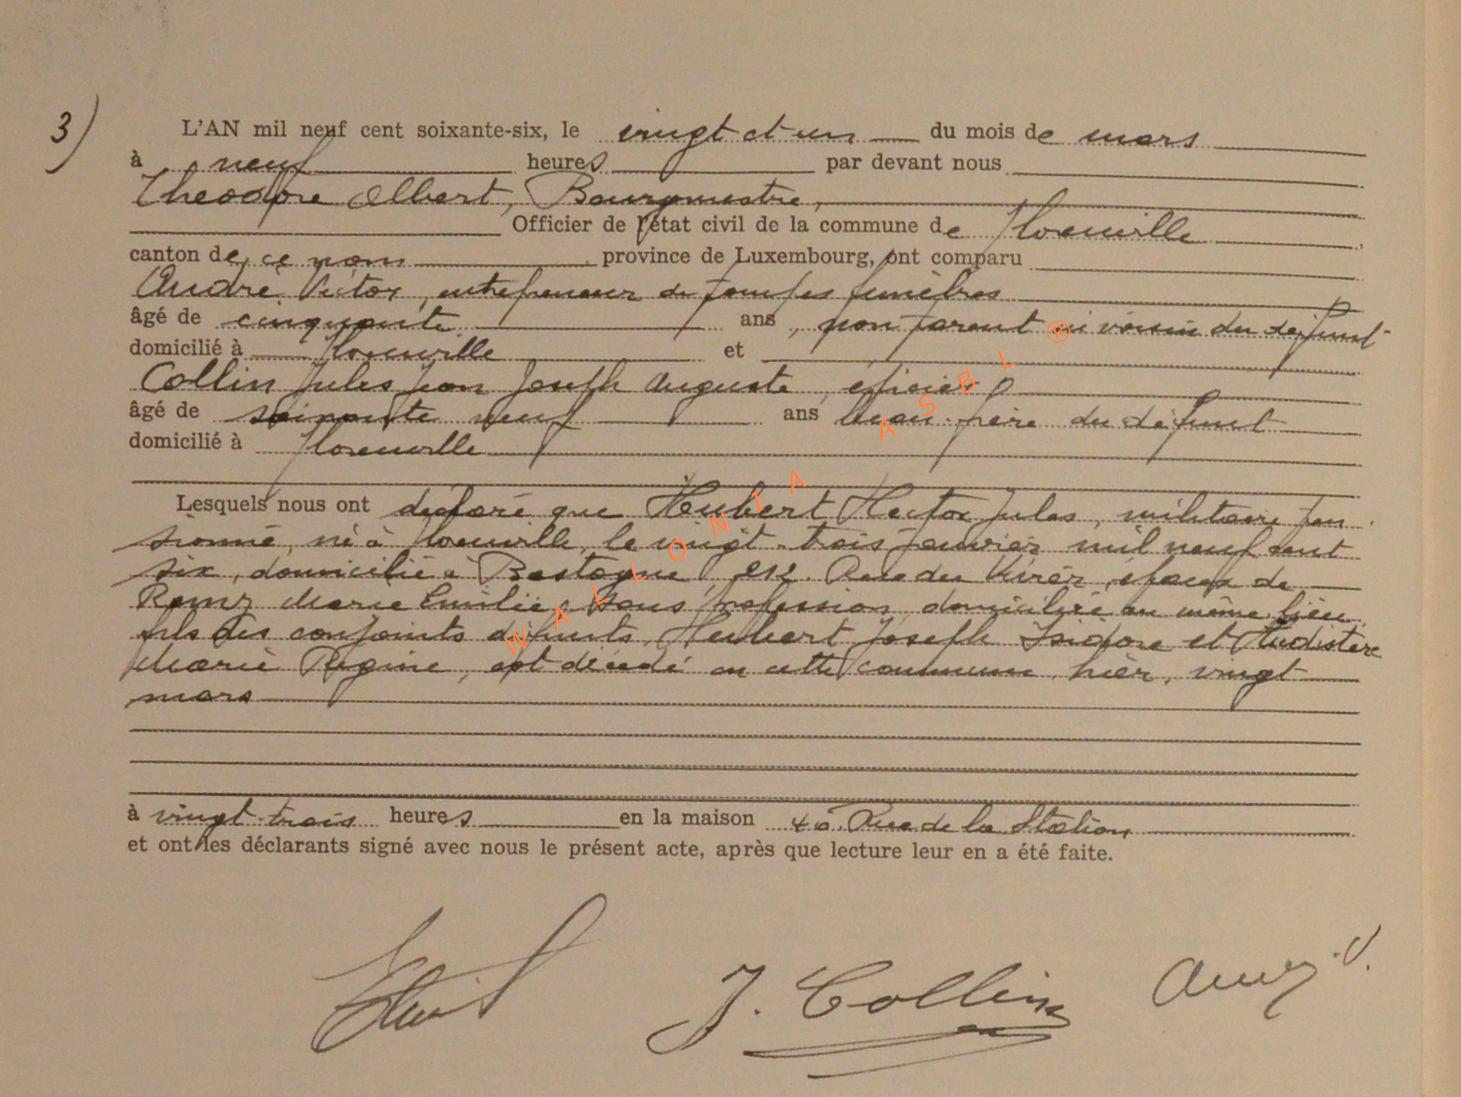 3)
L'AN mil neuf cent soixante-six, le vingt et un du mois de mars
à neuf heures par devant nous
Théodore Albert, Bourgmestre,
Officier de l'état civil de la commune de Florenville
canton de ce nom province de Luxembourg, ont comparu
André Victor, entrepreneur de pompes funèbres
âgé de cinquante ans, non parent ni voisin du défunt
domicilié à Florenville et
Collin Jules Jean Joseph Auguste, épicier
âgé de soixante neuf ans beau-frère du défunt
domicilié à Florenville
Lesquels nous ont déclaré que Hubert Hector Jules, militaire pen
sionné, né à Florenville, le vingt-trois janvier mil neuf cent
six, domicilié à Bastogne, Rue du Vivier, époux de
Marie Emilie, sans profession domiciliée au même lieu,
fils des conjoints défunts Hubert Joseph Isidore et
Marie Régine, est décédé en cette commune, hier, vingt
mars
à vingt-trois heures en la maison Rue de la Station
et ont les déclarants signé avec nous le présent acte, après que lecture leur en a été faite.
J. Collin
WALLONIA ASBL ®